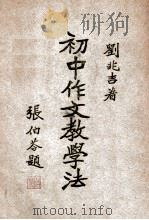 劉兆吉著
初中作文教學法
張伯苓題